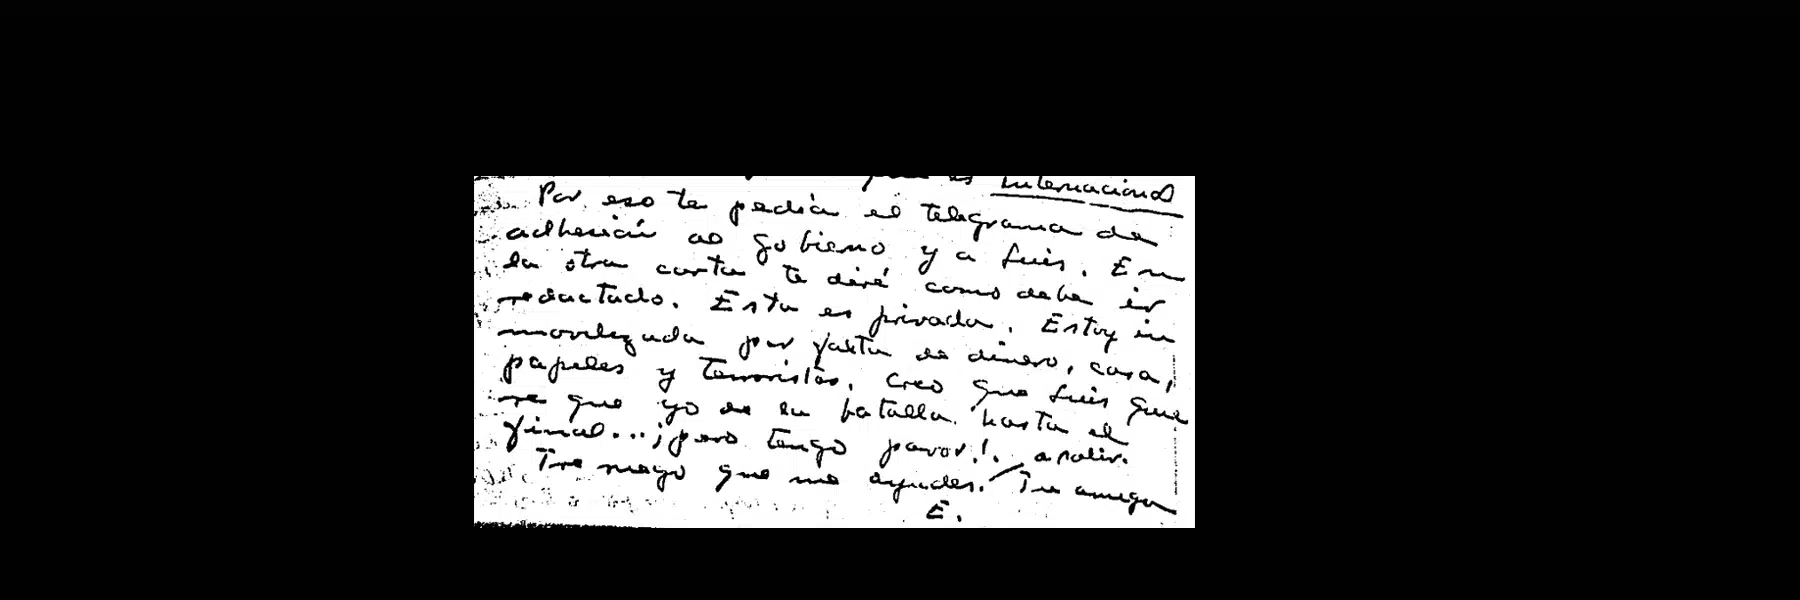 es internacional
Por eso te pedía el telegrama de
adhesión al gobierno y a Luis. En
la otra carta te diré como debe ir
redactado. Esta es privada. Estoy in
movilizada por falta de dinero, casa,
papeles y terroristas. Creo que Luis quie
re que yo dé la batalla hasta el
final...¡pero tengo pavor!. a salir.
Te ruego que me ayudes. Tu amiga
E.